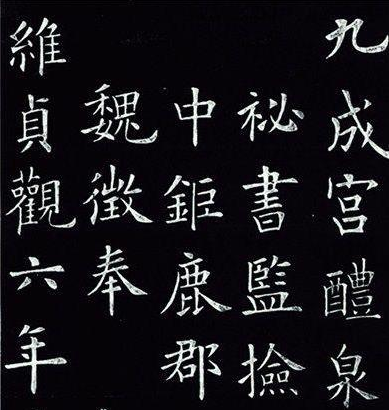 九成宮醴泉
祕書監撿
中鉅鹿郡
魏徵奉
維貞觀六年